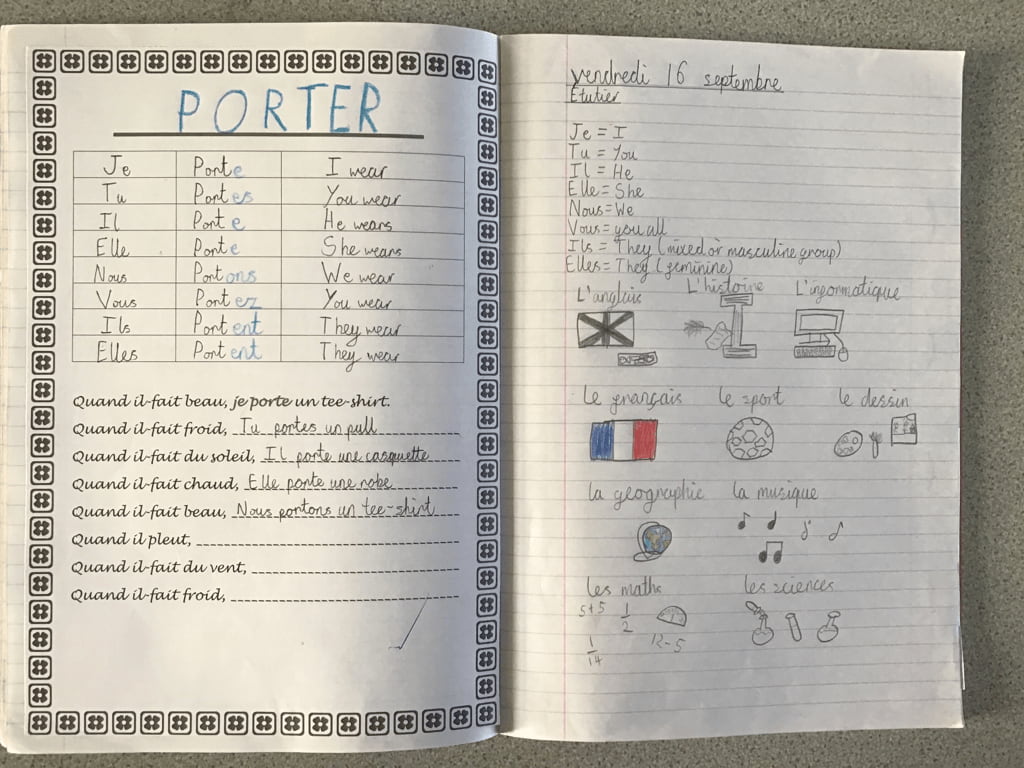 PORTER
Je Porte I wear
Tu Portes You wear
Il Porte He wears
Elle Porte She wears
Nous Portons We wear
Vous Portez You wear
Ils Portent They wear
Elles Portent They wear
Quand il-fait beau, je porte un tee-shirt.
Quand il-fait froid, Tu portes un pull
Quand il-fait du soleil, Il porte une casquette
Quand il-fait chaud, Elle porte une robe
Quand il-fait beau, Nous portons un tee-shirt
Quand il pleut,
Quand il-fait du vent,
Quand il-fait froid,
vendredi 16 septembre
Étutier
Je = I
Tu = You
Il = He
Elle = She
Nous = We
Vous = you all
Ils = They (mixed or masculine group)
Elles = They (feminine)
L'anglais L'histoire L'informatique
le français le sport le dessin
la geographie la musique
les maths les sciences
5+5 1/2
1/14 12-5